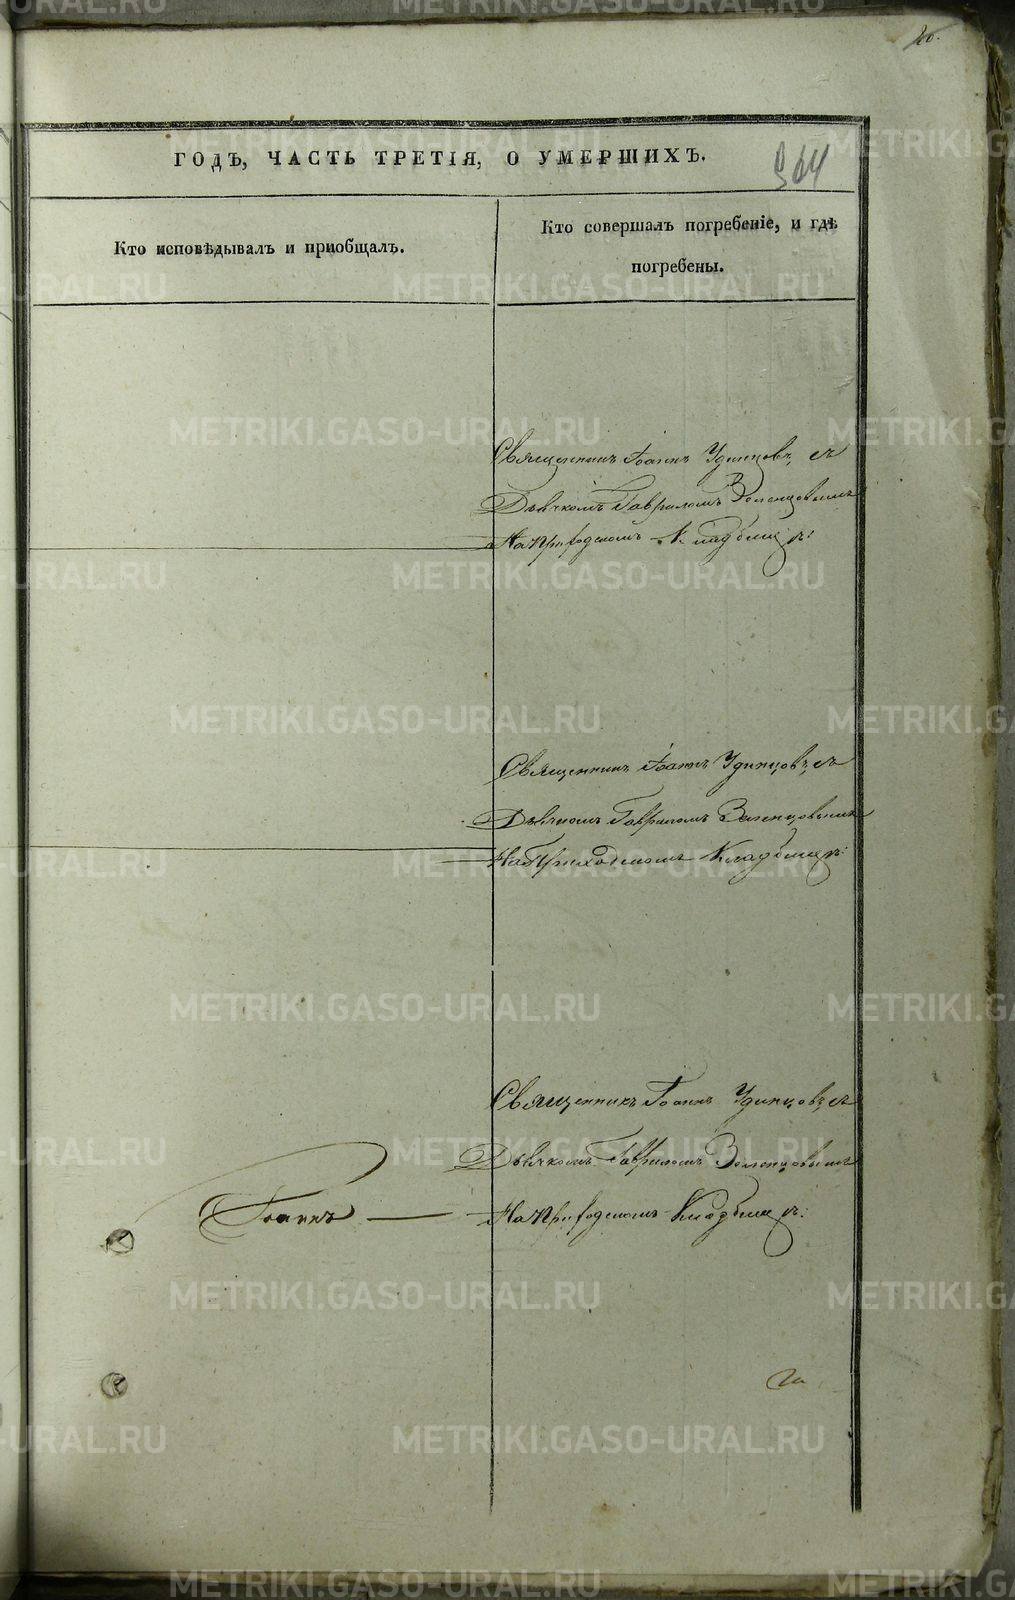 20.
ГОДЪ, ЧАСТЬ ТРЕТІЯ, О УМЕРШИХЪ.
364
Кто исповѣдывалъ и пріобщалъ.
Кто совершалъ погребеніе, и гдѣ
погребены.
Священникъ Іоаннъ Удинцовъ, съ
Дьячкомъ Гавриломъ
На Приходскомъ Кладбищѣ:
Священникъ Іоаннъ Удинцовъ, съ
Дьячкомъ Гавриломъ
На Приходскомъ Кладбищѣ:
Священникъ Іоаннъ Удинцовъ, съ
Дьячкомъ Гавриломъ
Іоаннъ
На Приходскомъ Кладбищѣ:
METRIKI.GASO-URAL.RU